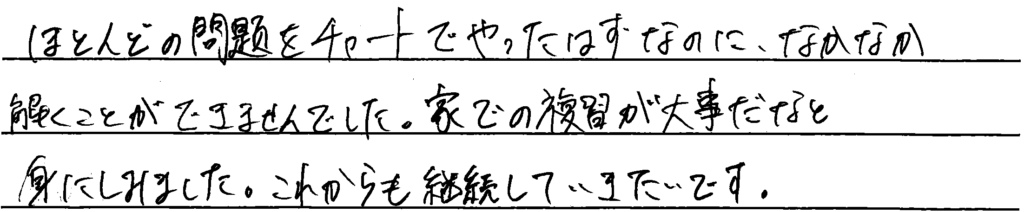 ほとんどの問題をチャートでやったはずなのに、なかなか
解くことができませんでした。家での複習が大事だなと
身にしみました。これからも継続していきたいです。